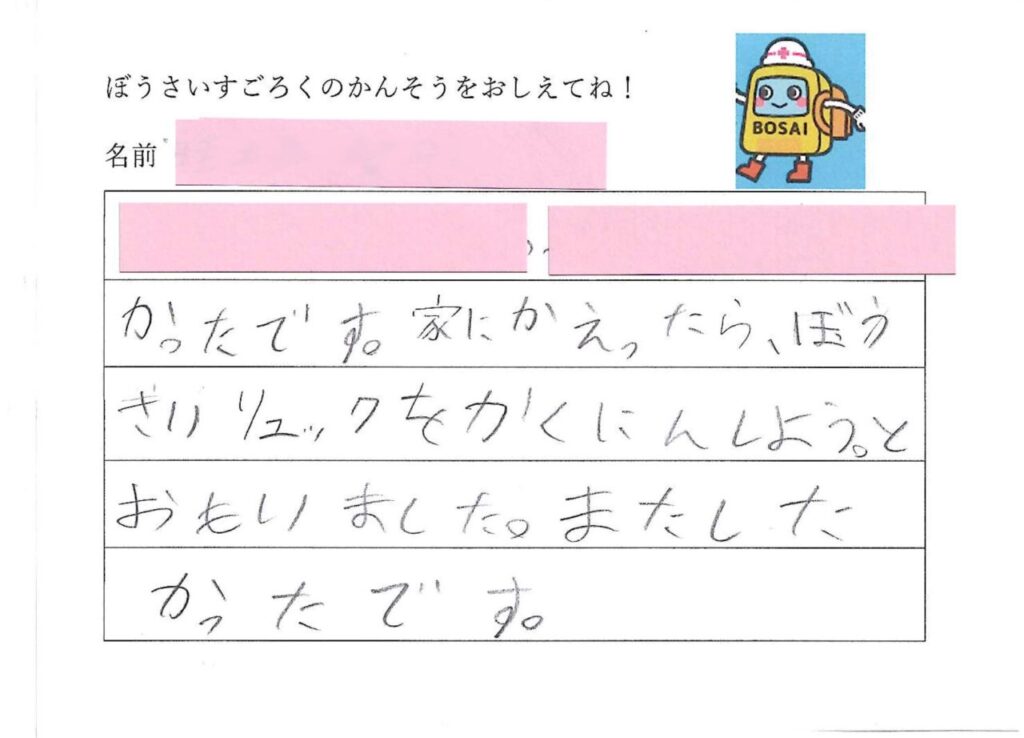 ぼうさいすごろくのかんそうをおしえてね！
BOSAI
名前
かったです。家にかえったら、ぼう
さいリュックをかくにんしよう。と
おもいました。またした
かったです。